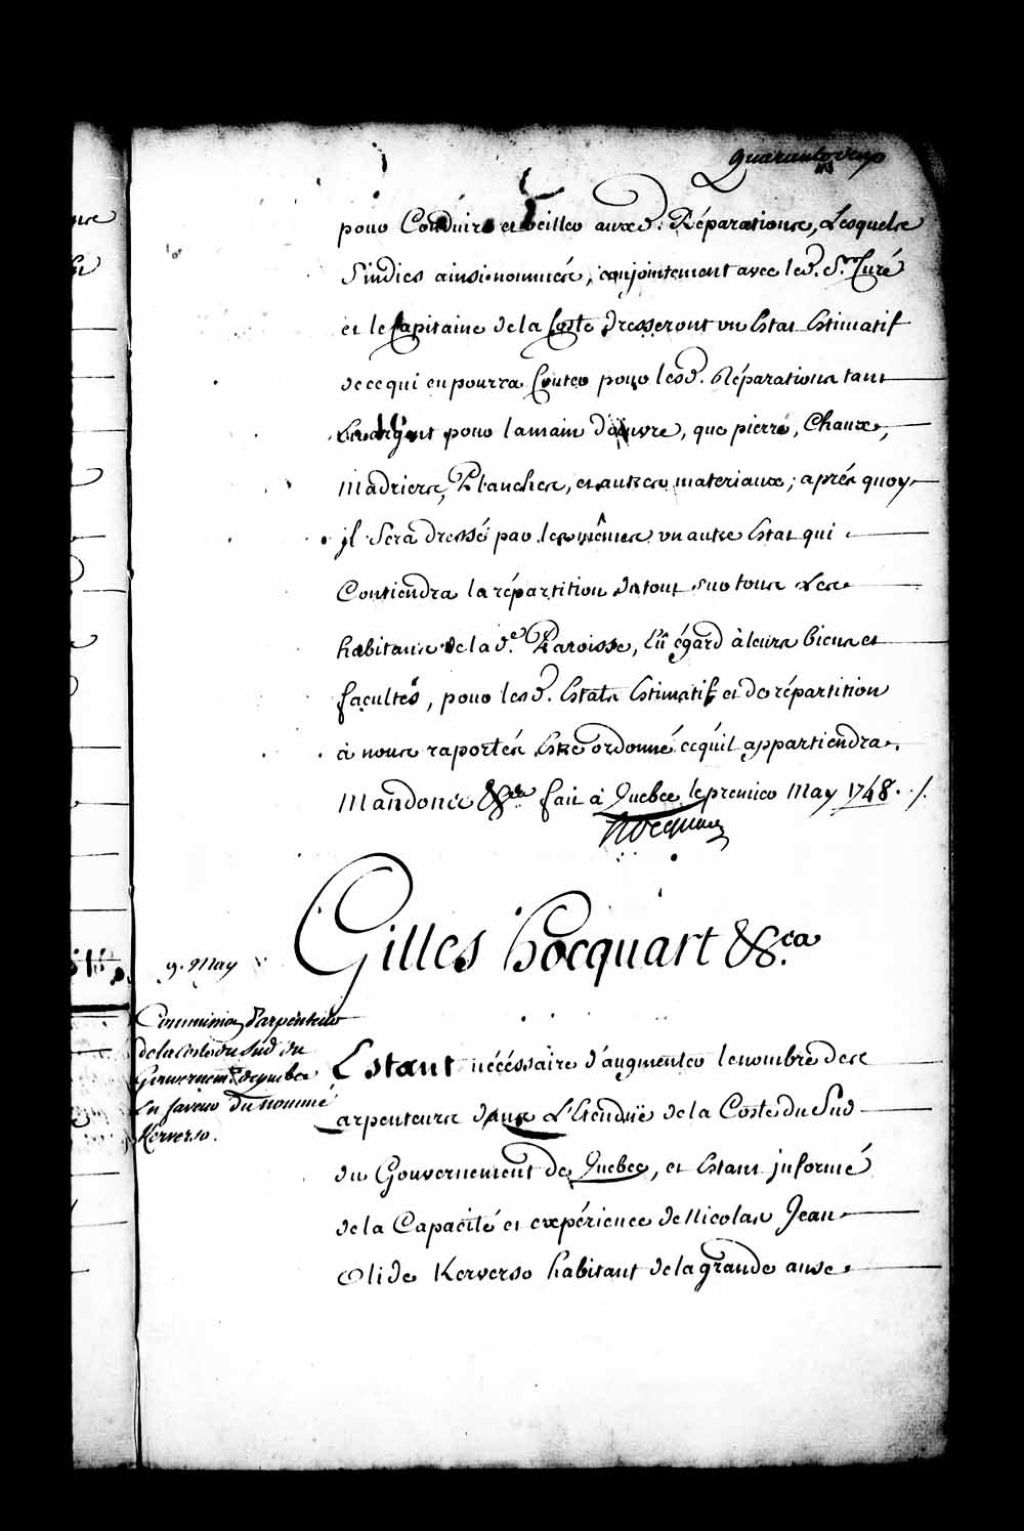 pour Conduire et veiller auxd. Réparations, Lesquels
Sindics ainsi nommés, conjointement avec led. Sr. Curé
et le Capitaine de la Coste dresseront un Estat Estimatif
de ce qui en pourra Couter pour lesd. Réparations tant
En argent pour la main d'œuvre, que pierre, Chaux,
Madriers, Planches, et autres materiaux; aprés quoy
jl Sera dressé par les mêmes un autre Estat qui
Contiendra la répartition du tout sur tous Les
habitans de la de. Paroisse, Eû égard à leurs biens et
facultés, pour lesd. Estats Estimatif et de répartition
à nous raportés Estre ordonné ce qu'il appartiendra.
Mandons &ca fait à Quebec le premier May 1748. /.
hocquart
Gilles hocquart &ca
9. May
Commission d'arpenteur
de la Coste du Sud du
Gouvernemt. de quebec
En faveur du nommé
Kerverso.
Estant nécéssaire d'augmenter le nombre des
arpenteurs dans L'Etenduë de la Coste du Sud
du Gouvernement de Quebec, et Estant jnformé
de la Capacité et expérience de Nicolas Jean
Olide Kerverso habitant de la grande anse